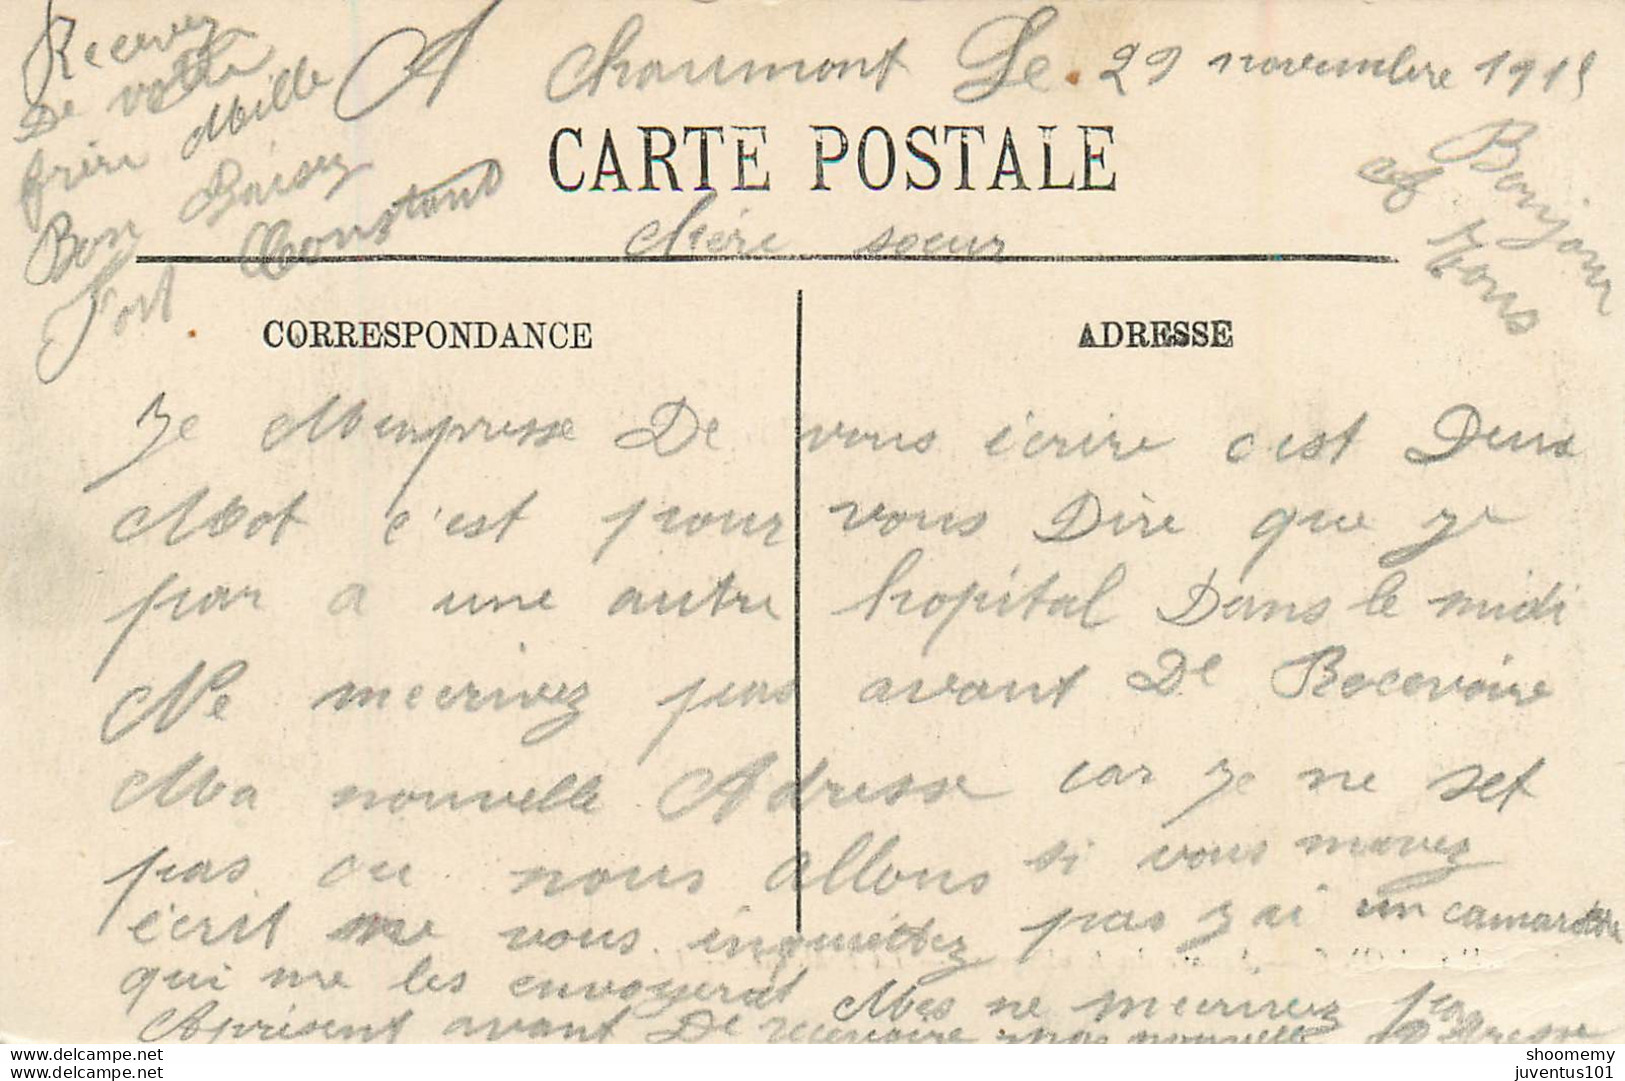 A Chaumont Le. 29 novembre 1915
Recevez
De votre
frère Mille
Bon Baisez
Fort Constans
Bonjour
à tous
CARTE POSTALE
chère soeur
CORRESPONDANCE
ADRESSE
Je Mempresse De vous écrire c est Deux
Mot c'est pour vous Dire que je
par a une autre hopital Dans le midi
Ne mecrivez pas avant De Recevoire
Ma nouvelle Adresse car je ne set
pas ou nous allons si vous mavez
écrit me vous inquiettez pas j ai un camarade
qui me les envoyerat Mes ne mecrivez pas
Aprésent avant De recevoire ma nouvelle Adresse
www.delcampe.net
www.delcampe.net
shoomemy
juventus101